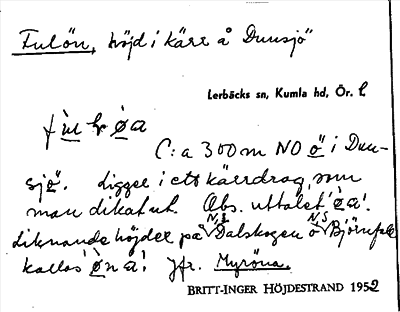 Fulön, höjd i kärr å Dunsjö
Lerbäcks sn, Kumla hd, Ör. l.
C:a 300 m NO ö i Dun-
sjö. Ligger i ett kärrdrag, som
man dikat ut. Obs. uttalet 'öa'.
N.S N.S
Liknande höjder på Dalskogen o Björnfall
kallas 'öna'. Jfr. Myröna.
BRITT-INGER HÖJDESTRAND 1952